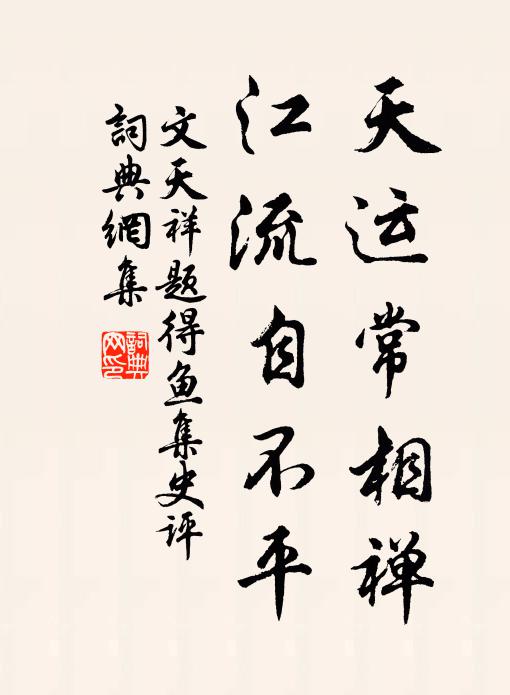 天运常相禅
江流自不平
文天祥题得鱼集史评
詞典網集
詞典網印